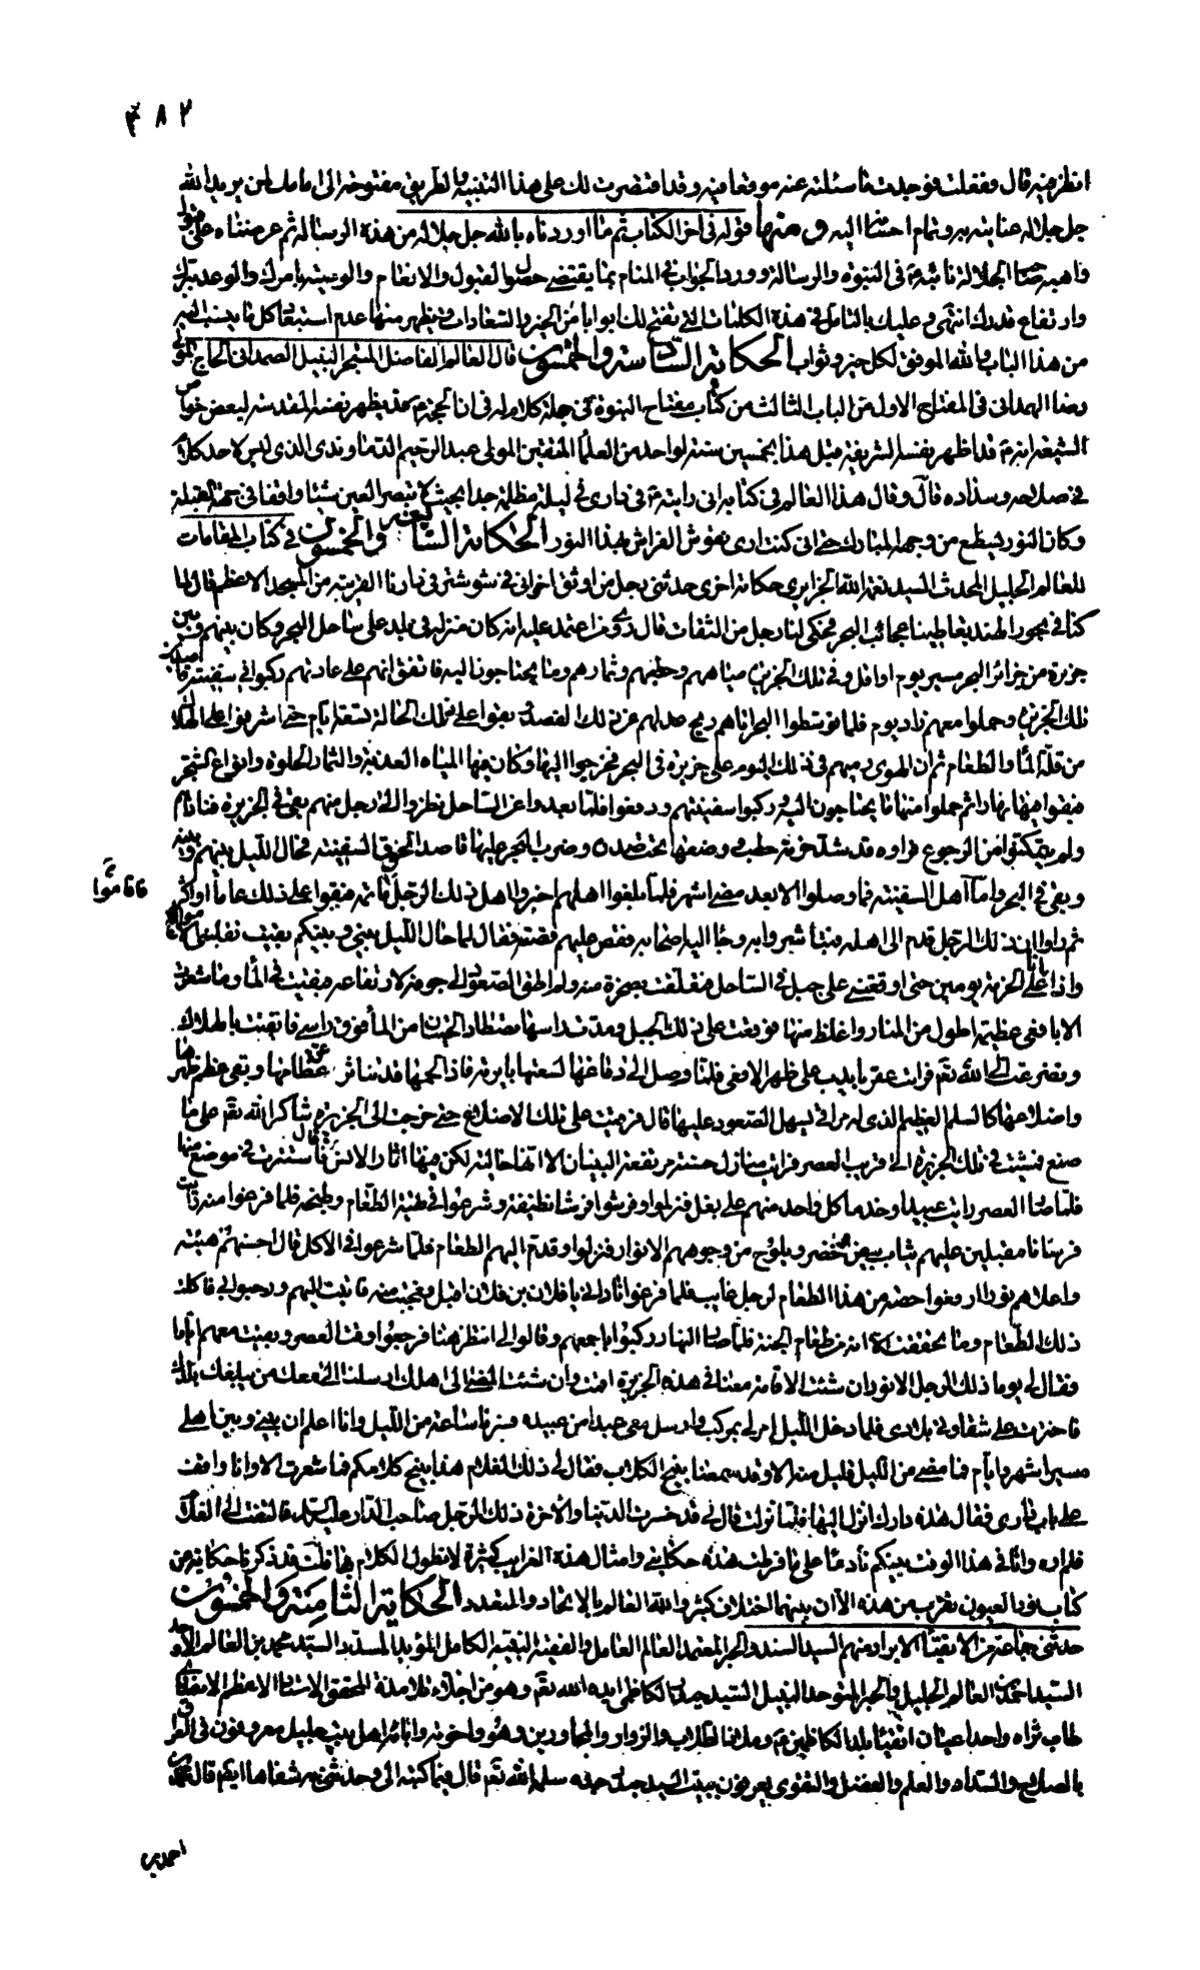 ٣٨٢
انظر فيه قال ففعلت فوجدت ما سئلته عنه موقعا فيه وقد اقتصرت لك على هذا التنبيه والطريق مفتوحة الى امامك لمن يريد الله
جل جلاله عنايته به وتمام احسانه اليه ومنها قوله فى اخر الكتاب ثم ما اوردناه بالله جل جلاله من هذه الرسالة ثم عرضناه على قبول
واهبه صاحب الجلالة نائبه ع فى النبوة والرسالة وورد الجواب فى المنام بما يقتضى حصول القبول والانعام والوصية بامرك والوعد ببرك
وارتفاع قدرك انتهى وعليك بالتامل فى هذه الكلمات التى تفتح لك ابوابا من الخير والسعادات ويظهر منها عدم استبعاد كل ما ينسب اليه
من هذا الباب والله الموفق لكل خير وثواب الحكاية السادسة والخمسون قال العالم الفاضل المتبحر النبيل الصمدانى الحاج المولى
رضا الهمدانى فى المفتاح الاول من الباب الثالث من كتاب مفتاح النبوة فى جملة كلام له فى ان الحجة ع قد يظهر نفسه المقدسة لبعض خواص
الشيعة انه ع قد اظهر نفسه الشريفة قبل هذا بخمسين سنة لواحد من العلماء المتقين المولى عبد الرحيم الدماوندى الذى ليس لاحد كلام
فى صلاحه وسداده قال وقال هذا العالم فى كتابه انى رايته ع فى دارى فى ليلة مظلمة جدا بحيث لا تبصر العين شيئا واقفا فى جهة القبلة
وكان النور يسطع من وجهه المبارك حتى انى كنت ارى نقوش الفراش بهذا النور الحكاية السابعة والخمسون فى كتاب المقامات
للعالم الجليل المحدث السيد نعمة الله الجزايرى حكاية اخرى حدثنى رجل من اوثق اخوانى فى شوشتر فى دارنا القريبة من المسجد الاعظم قال لما
كنا فى بحور الهند تعاطينا عجائب البحر فحكى لنا رجل من الثقات قال روى من اعتمد عليه انه كان منزله فى بلد على ساحل البحر وكان بينهم وبين
جزيرة من جزائر البحر مسير يوم او اقل وفى تلك الجزيرة مياههم وحطبهم وثمارهم وما يحتاجون اليه فاتفق انهم على عادتهم ركبوا فى سفينة قاصدين
تلك الجزيرة وحملوا معهم زاد يوم فلما توسطوا البحر اتاهم ريح عدلهم عن ذلك القصد وبقوا على تلك الحالة تسعة ايام حتى اشرفوا على الهلاك
من قلة الماء والطعام ثم ان الهوى رميهم فى ذلك اليوم على جزيرة فى البحر فخرجوا اليها وكان فيها المياه العذبة والثمار الحلوة وانواع الشجر
فبقوا فيها نهارا ثم حملوا منها ما يحتاجون اليه وركبوا سفينتهم ودفعوا فلما بعدوا عن الساحل نظروا الى رجل منهم بقى فى الجزيرة فناداهم
ولم يتمكنوا من الرجوع فراوه قد شد حزمة حطب ووضعها تحت صدره وضرب البحر عليها قاصدا لحوق السفينة فحال الليل بينهم وبينه
وبقى فى البحر واما اهل السفينة فما وصلوا الا بعد مضى اشهر فلما بلغوا اهلهم اخبروا اهل ذلك الرجل فاقاموا ماتمه فبقوا على ذلك عاما او اكثر
ثم راوا ان ذلك الرجل قدم الى اهله فتباشروا به وجاء اليه اصحابه فقص عليهم قصته فقال لما حال الليل بينى وبينكم بقيت تقلبنى الامواج
وانا على الحزمة يومين حتى اوقعتنى على جبل فى الساحل فتعلقت بصخرة منه ولم اطق الصعود الى جوفه لارتفاعه فبقيت فى الماء وما شعرت
الا بافعى عظيمة اطول من المنار واغلظ منها فوقعت على ذلك الجبل ومدت راسها تصطاد الحيتان من الماء فوق راسى فايقنت بالهلاك
وتضرعت الى الله تعم فرايت عقربا يدب على ظهر الافعى فلما وصل الى دماغها لسعتها بابرته فاذا لحمها قد تناثر عن عظامها وبقى عظم ظهرها
واضلاعها كالسلم العظيم الذى له مراقى يسهل الصعود عليها قال فرقيت على تلك الاضلاع حتى خرجت الى الجزيرة شاكرا لله تعم على ما
صنع فمشيت فى تلك الجزيرة الى قريب العصر فرايت منازل حسنة مرتفعة البنيان الا انها خالية لكن فيها اثار الانس قال فاستترت فى موضع منها
فلما صار العصر رايت عبيدا وخدما كل واحد منهم على بغل فنزلوا وفرشوا فرشا نظيفة وشرعوا فى تهيئة الطعام وطبخه فلما فرغوا منه رايت
فرسانا مقبلين عليهم ثياب بيض وخضر ويلوح من وجوههم الانوار فنزلوا وقدم اليهم الطعام فلما شرعوا فى الاكل قال احسنهم هيئة
واعلاهم نورا ارفعوا حصة من هذا الطعام لرجل غايب فلما فرغوا نادانى يا فلان بن فلان اقبل فعجبت منه فاتيت اليهم ورحبوا بى فاكلت
ذلك الطعام وما تحققت الا انه من طعام الجنة فلما صار النهار ركبوا باجمعهم وقالوا لى انتظر هنا فرجعوا وقت العصر وبقيت معهم اياما
فقال لى يوما ذلك الرجل الانور ان شئت الاقامة معنا فى هذه الجزيرة اقمت وان شئت المضى الى اهلك ارسلنا معك من يبلغك بلدك
فاخترت على شقاوتى بلادى فلما دخل الليل امر لى بمركب وارسل معى عبدا من عبيده فسرنا ساعة من الليل وانا اعلم ان بينى وبين اهلى
مسيرة اشهر وايام فما مضى من الليل قليل منه الا وقد سمعنا نبيح الكلاب فقال لى ذلك الغلام هذا نبيح كلابكم فما شعرت الا وانا واقف
على باب دارى فقال هذه دارك انزل اليها فلما نزلت قال لى قد خسرت الدنيا والاخرة ذلك الرجل صاحب الدار عليه السلام فالتفت الى الغلام
فلم اره وانا فى هذا الوقت بينكم نادما على ما فرطت هذه حكايتى وامثال هذه الغرايب كثيرة لا نطول الكلام بها قلت قد ذكرنا حكاية عن
كتاب نور العيون تقرب من هذه الا ان بينهما اختلاف كثير والله العالم بالاتحاد والتعدد الحكاية الثامنة والخمسون
حدثنى جماعة من الاتقياء الابرار منهم السيد السند والحبر المعتمد العالم العامل والفقيه النبيه الكامل المؤيد المسدد السيد محمد بن العالم الاوحد
السيد احمد بن العالم الجليل والحبر المتوحد النبيل السيد حيدر الكاظمى ايده الله تعم وهو من اجلاء تلامذة المحقق الاستاد الاعظم الانصارى
طاب ثراه واحد اعيان اتقياء بلد الكاظمين ع وملاذ الطلاب والزوار والمجاورين وهو واخوته واباؤه اهل بيت جليل معروفون فى العراق
بالصلاح والسداد والعلم والفضل والتقوى يعرفون ببيت السيد حيدر جده سلمه الله تعم قال فيما كتبه الى وحدثنى به شفاها ايضا قال محمد بن
احمد بن